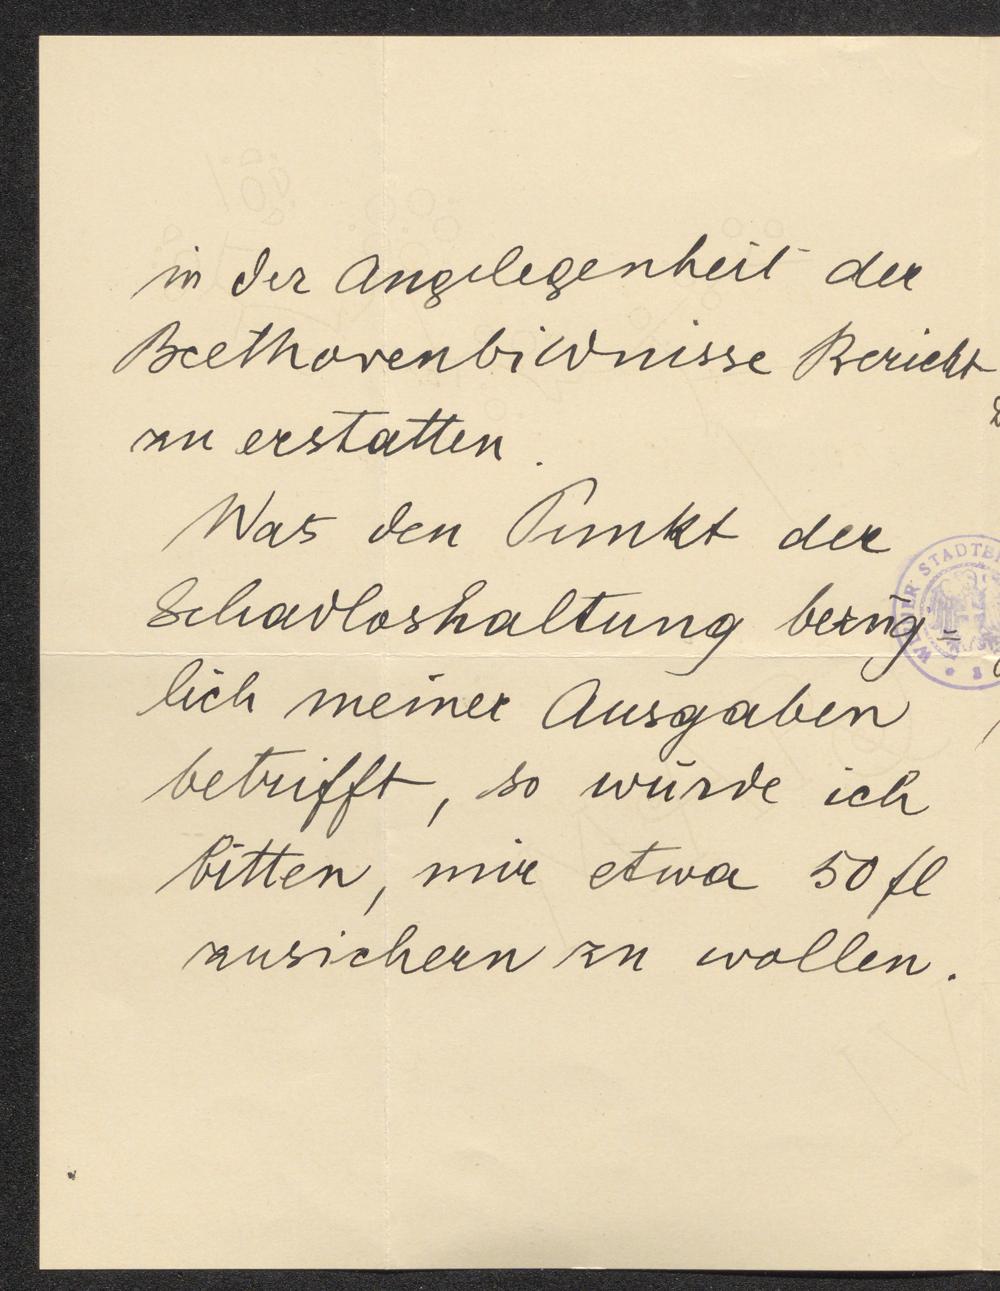 in der Angelegenheit der
Beethovenbildnisse Bericht
zu erstatten.
Was den Punkt der
Schadloshaltung bezüg=
lich meiner Ausgaben
betrifft, so würde ich
bitten, mir etwa 50 fl
zusichern zu wollen.
WIENER STADTBI